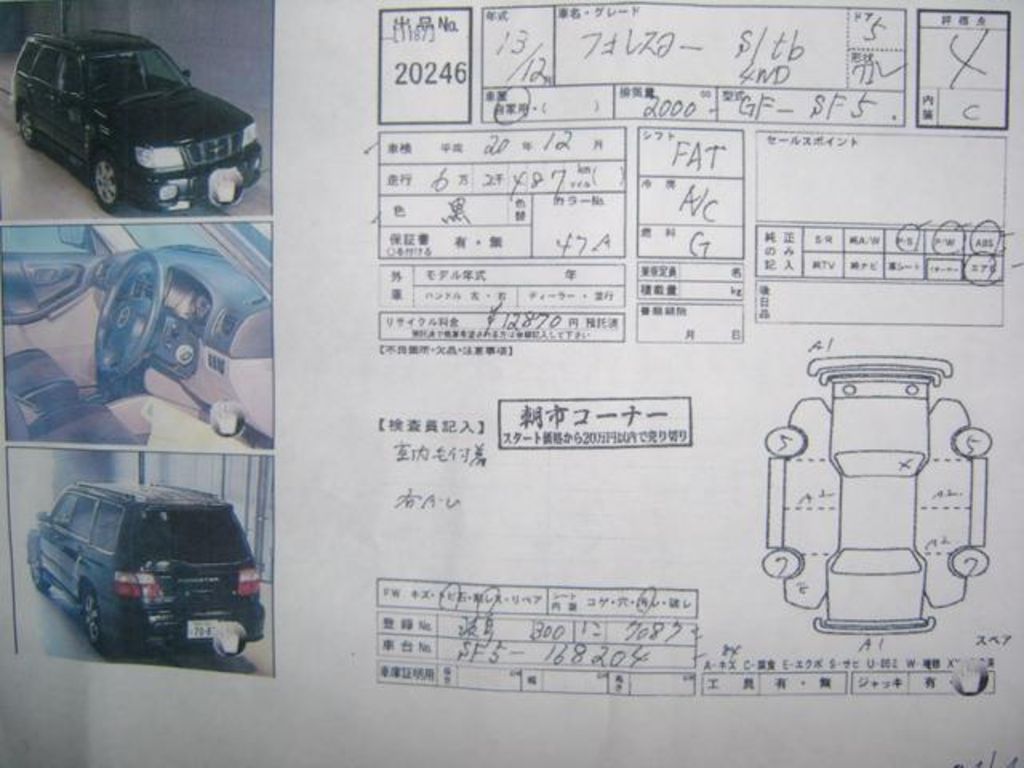 出品No.
[1187]
20246
年式 13/12
車名・グレード フォレスター S/tb 4WD
ドア 5
形状 ワゴン
評価点 4
内装 C
車歴 自家用・( )
排気量 2000 cc
型式 GF-SF5
車検 平成 20年 12月
走行 6万 2千 487 km
色 黒
色替
カラーNo. 47A
保証書 有・無
シフト FAT
冷房 A/C
燃料 G
セールスポイント
純正のみ記入 S/R 純A/W P/S P/W ABS
純TV 純ナビ 革シート エアB
後日品
外車 モデル年式 年
ハンドル 左・右 ディーラー・並行
乗車定員 名
積載量 kg
書類期限 月 日
リサイクル料金 ¥12870円 預託済
【不良箇所・欠品・注意事項】
朝市コーナー
スタート価格から20万円以内で売り切り
【検査員記入】
A1
5 5
X
A2 A2
A2
7 7
A1
スペア
FW キズ・トビ石・線レス・リペア シート内装 コゲ・穴・汚レ・破レ
登録No. 300 7087
車台No. SF5-168204
車庫証明用 長さ cm 幅 cm 高さ cm
A-キズ C-腐食 E-エクボ S-サビ U-凹ミ W-補修
工具 有・無 ジャッキ 有